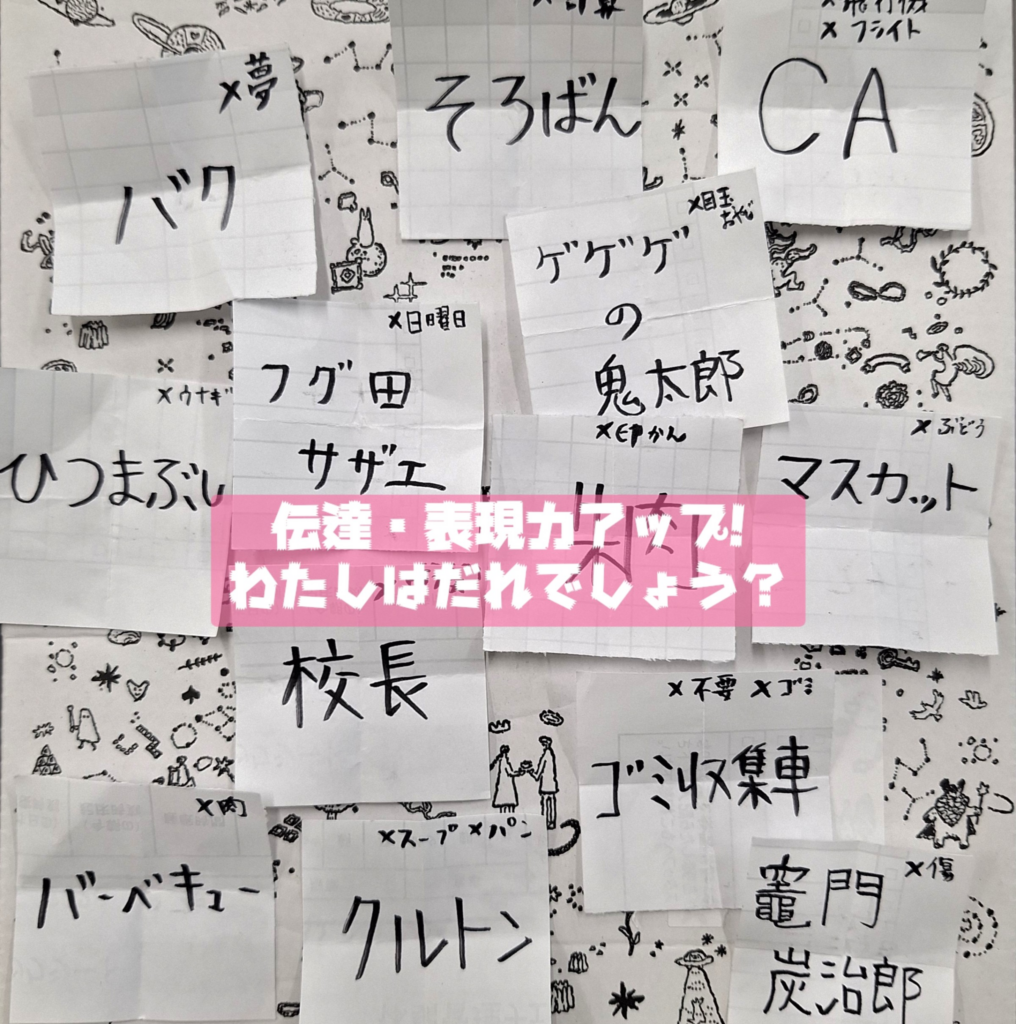 ×夢
バク
そろばん
×フライト
CA
×目玉
おやじ
ゲゲゲ
の
鬼太郎
×日曜日
フグ田
サザエ
×ウナギ
ひつまぶし
×印かん
朱肉
×ぶどう
マスカット
伝達・表現力アップ!
わたしはだれでしょう?
校長
×不要 ×ゴミ
ゴミ収集車
×肉
バーベキュー
×スープ ×パン
クルトン
×傷
竈門
炭治郎